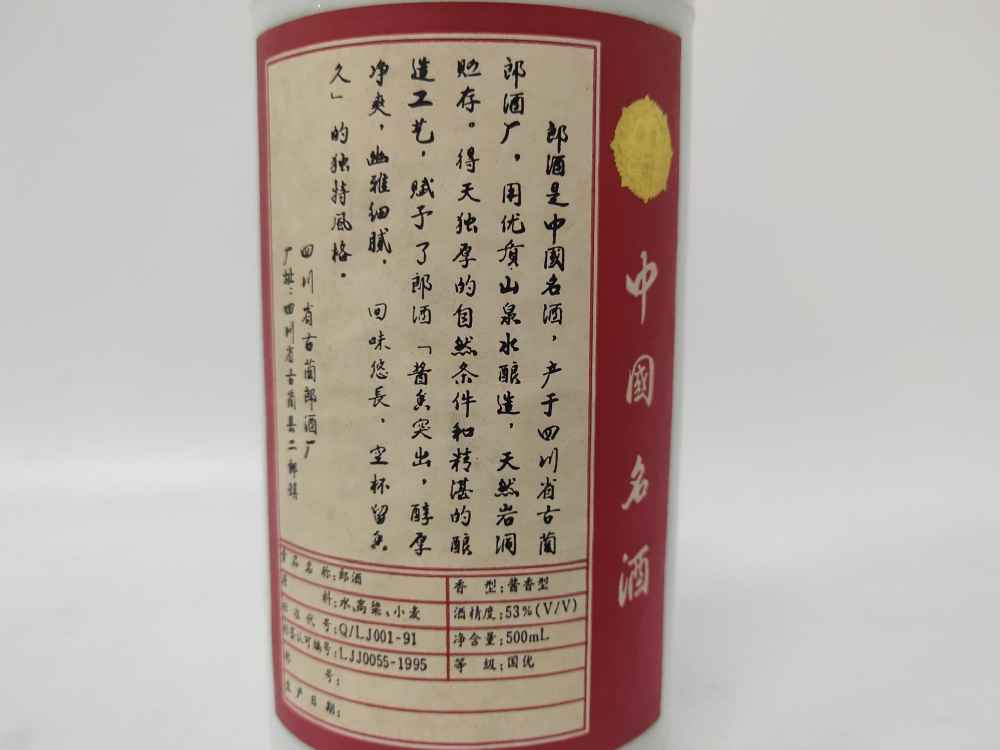 郎酒是中國名酒，产于四川省古蔺
郎酒厂，用优质山泉水酿造，天然岩洞
贮存。得天独厚的自然条件和精湛的酿
造工艺，赋予了郎酒「酱香突出，醇厚
净爽，幽雅细腻，回味悠長，空杯留香
久」的独特风格。
四川省古蔺郎酒厂
厂址：四川省古蔺县二郎镇
中國名酒
食品名称：郎酒
原料：水、高粱、小麦
标准代号：Q/LJ001-91
标签认可编号：LJJ0055-1995
批号：
生产日期：
香型：酱香型
酒精度：53%(V/V)
净含量：500mL
等级：国优